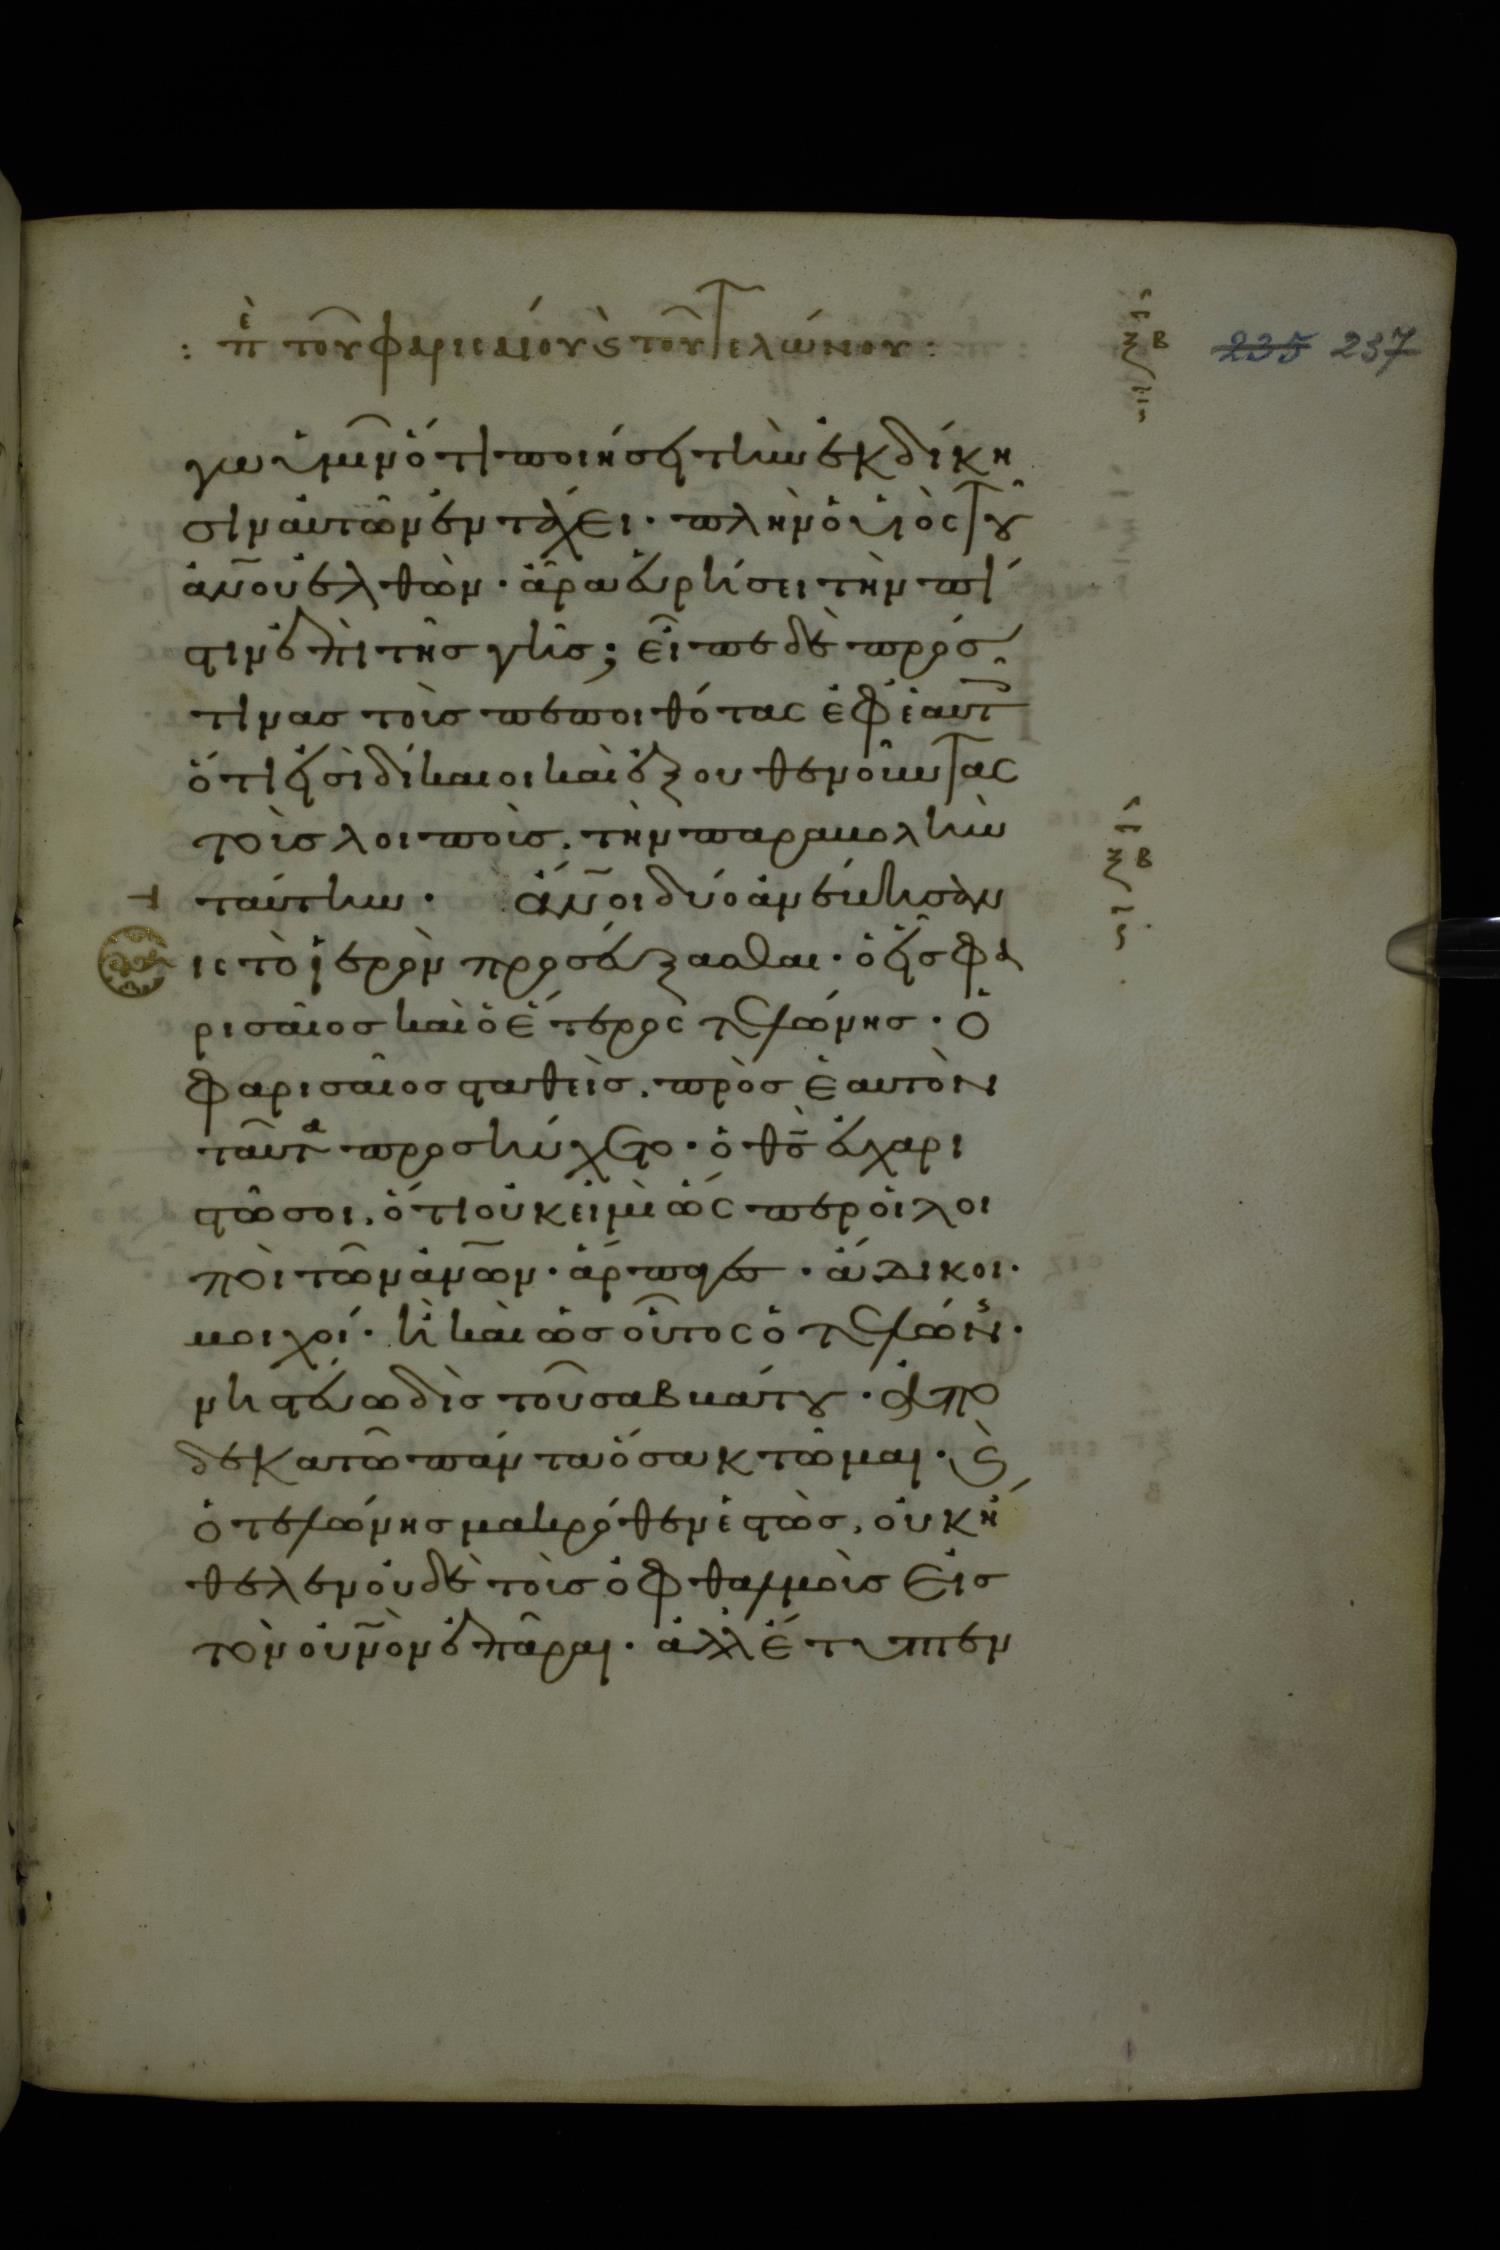 : πὲ τοῦ φαρισαίου ϛ̀ τοῦ τελώνου :
235 237
γω ὑμῖν ὅτι ποιήσει τὴν ἐκδίκη
σιν αὐτῶν ἐν τάχει · πλὴν ὁ υἱὸς τοῦ
ἀν̅ου ἐλθὼν · ἆρα εὑρήσει τὴν πί
στιν ἐπὶ τῆς γῆς ; εἶπε δὲ πρός
τινας τοὺς πεποιθότας ἐφ ἑαυτ
ὅτι εἰσὶ δίκαιοι καὶ ἐξουθενοῦντας
τοὺς λοιποὺς . τὴν παραβολὴν
ταύτην · ἄν̅οι δύο ἀνέβησαν
ις τὸ ἱερὸν προσεύξασθαι · ὁ εἷς φα
ρισαῖος καὶ ὁ ἕτερος τελώνης · ὁ
φαρισαῖος σταθεὶς . πρὸς ἑαυτὸν
ταῦτα προσηύχετο · ὁ θ̅ς̅ εὐχαρι
στῶ σοι . ὅτι οὐκ εἰμὶ ὥσπερ οἱ λοι
ποὶ τῶν ἀν̅ων · ἅρπαγες · ἄδικοι ·
μοιχοί · ἢ καὶ ὡς οὗτος ὁ τελών ·
νηστεύω δὶς τοῦ σαββάτου · ἀπο
δεκατῶ πάντα ὅσα κτῶμαι · ϛ̀
ὁ τελώνης μακρόθεν ἑστὼς , οὐκ ἤ
θελεν οὐδὲ τοὺς ὀφθαλμοὺς εἰς
τὸν οὐν̅ὸν ἐπᾶραι · ἀλλ ἔτυπτεν